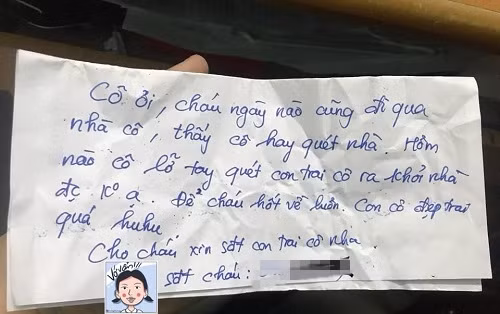 Cô ơi, cháu ngày nào cũng đi qua
nhà cô, thấy cô hay quét nhà. Hôm
nào cô lỡ tay quét con trai cô ra khỏi nhà
đc k⁰ ạ. Để cháu hốt về luôn. Con cô đẹp trai
quá huhu
Cho cháu xin sđt con trai cô nha.
sđt cháu: